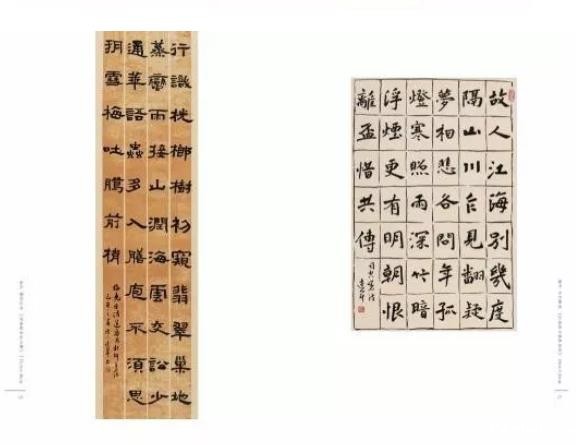 行識桄榔樹初窺翡翠巢地
蒸蠻雨接山潤海雲交訟少
通華語蟲多入膳庖不須思
朔雪梅吐臈前梢
故人江海別幾度
隔山川乍見翻疑
夢相悲各問年孤
燈寒照雨深竹暗
浮煙更有明朝恨
離盃惜共傳